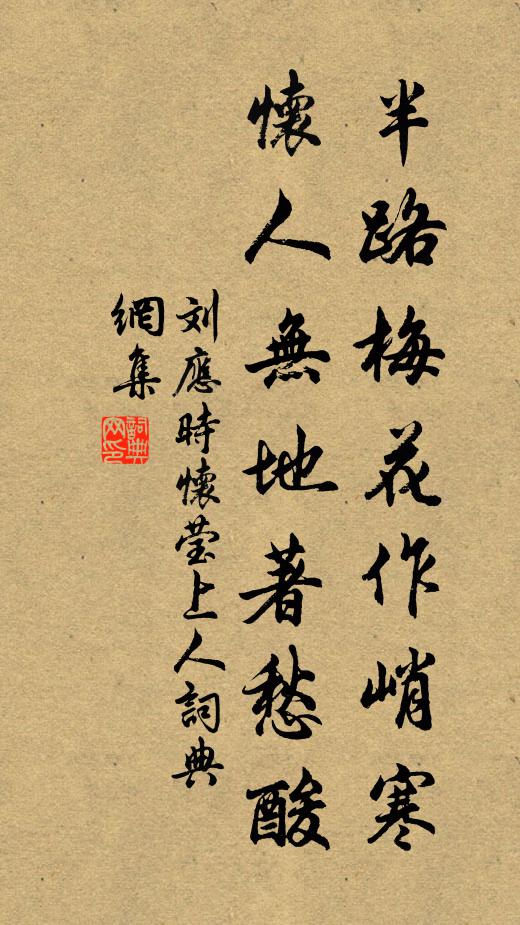 半路梅花作峭寒
懷人無地著愁酸
刘應時懷莹上人詞典
網集
詞典
网印